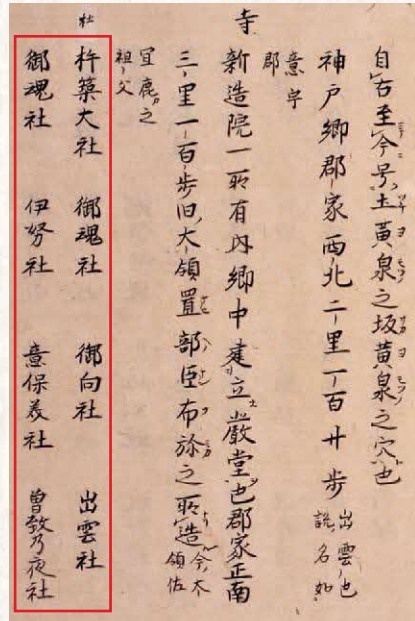 自古至今号土黄泉之坂黄泉之穴也
神戸郷郡家西北二里一百廾歩 出雲也
説名如
意宇
郡
寺
新造院一所有内郷中建立嚴堂也郡家正南
三里一百歩旧大領置部臣布旀之所造 今大
領佐
宜麁之
祖父
社
杵築大社 御魂社 御向社 出雲社
御魂社 伊努社 意保美社 曽敎乃夜社